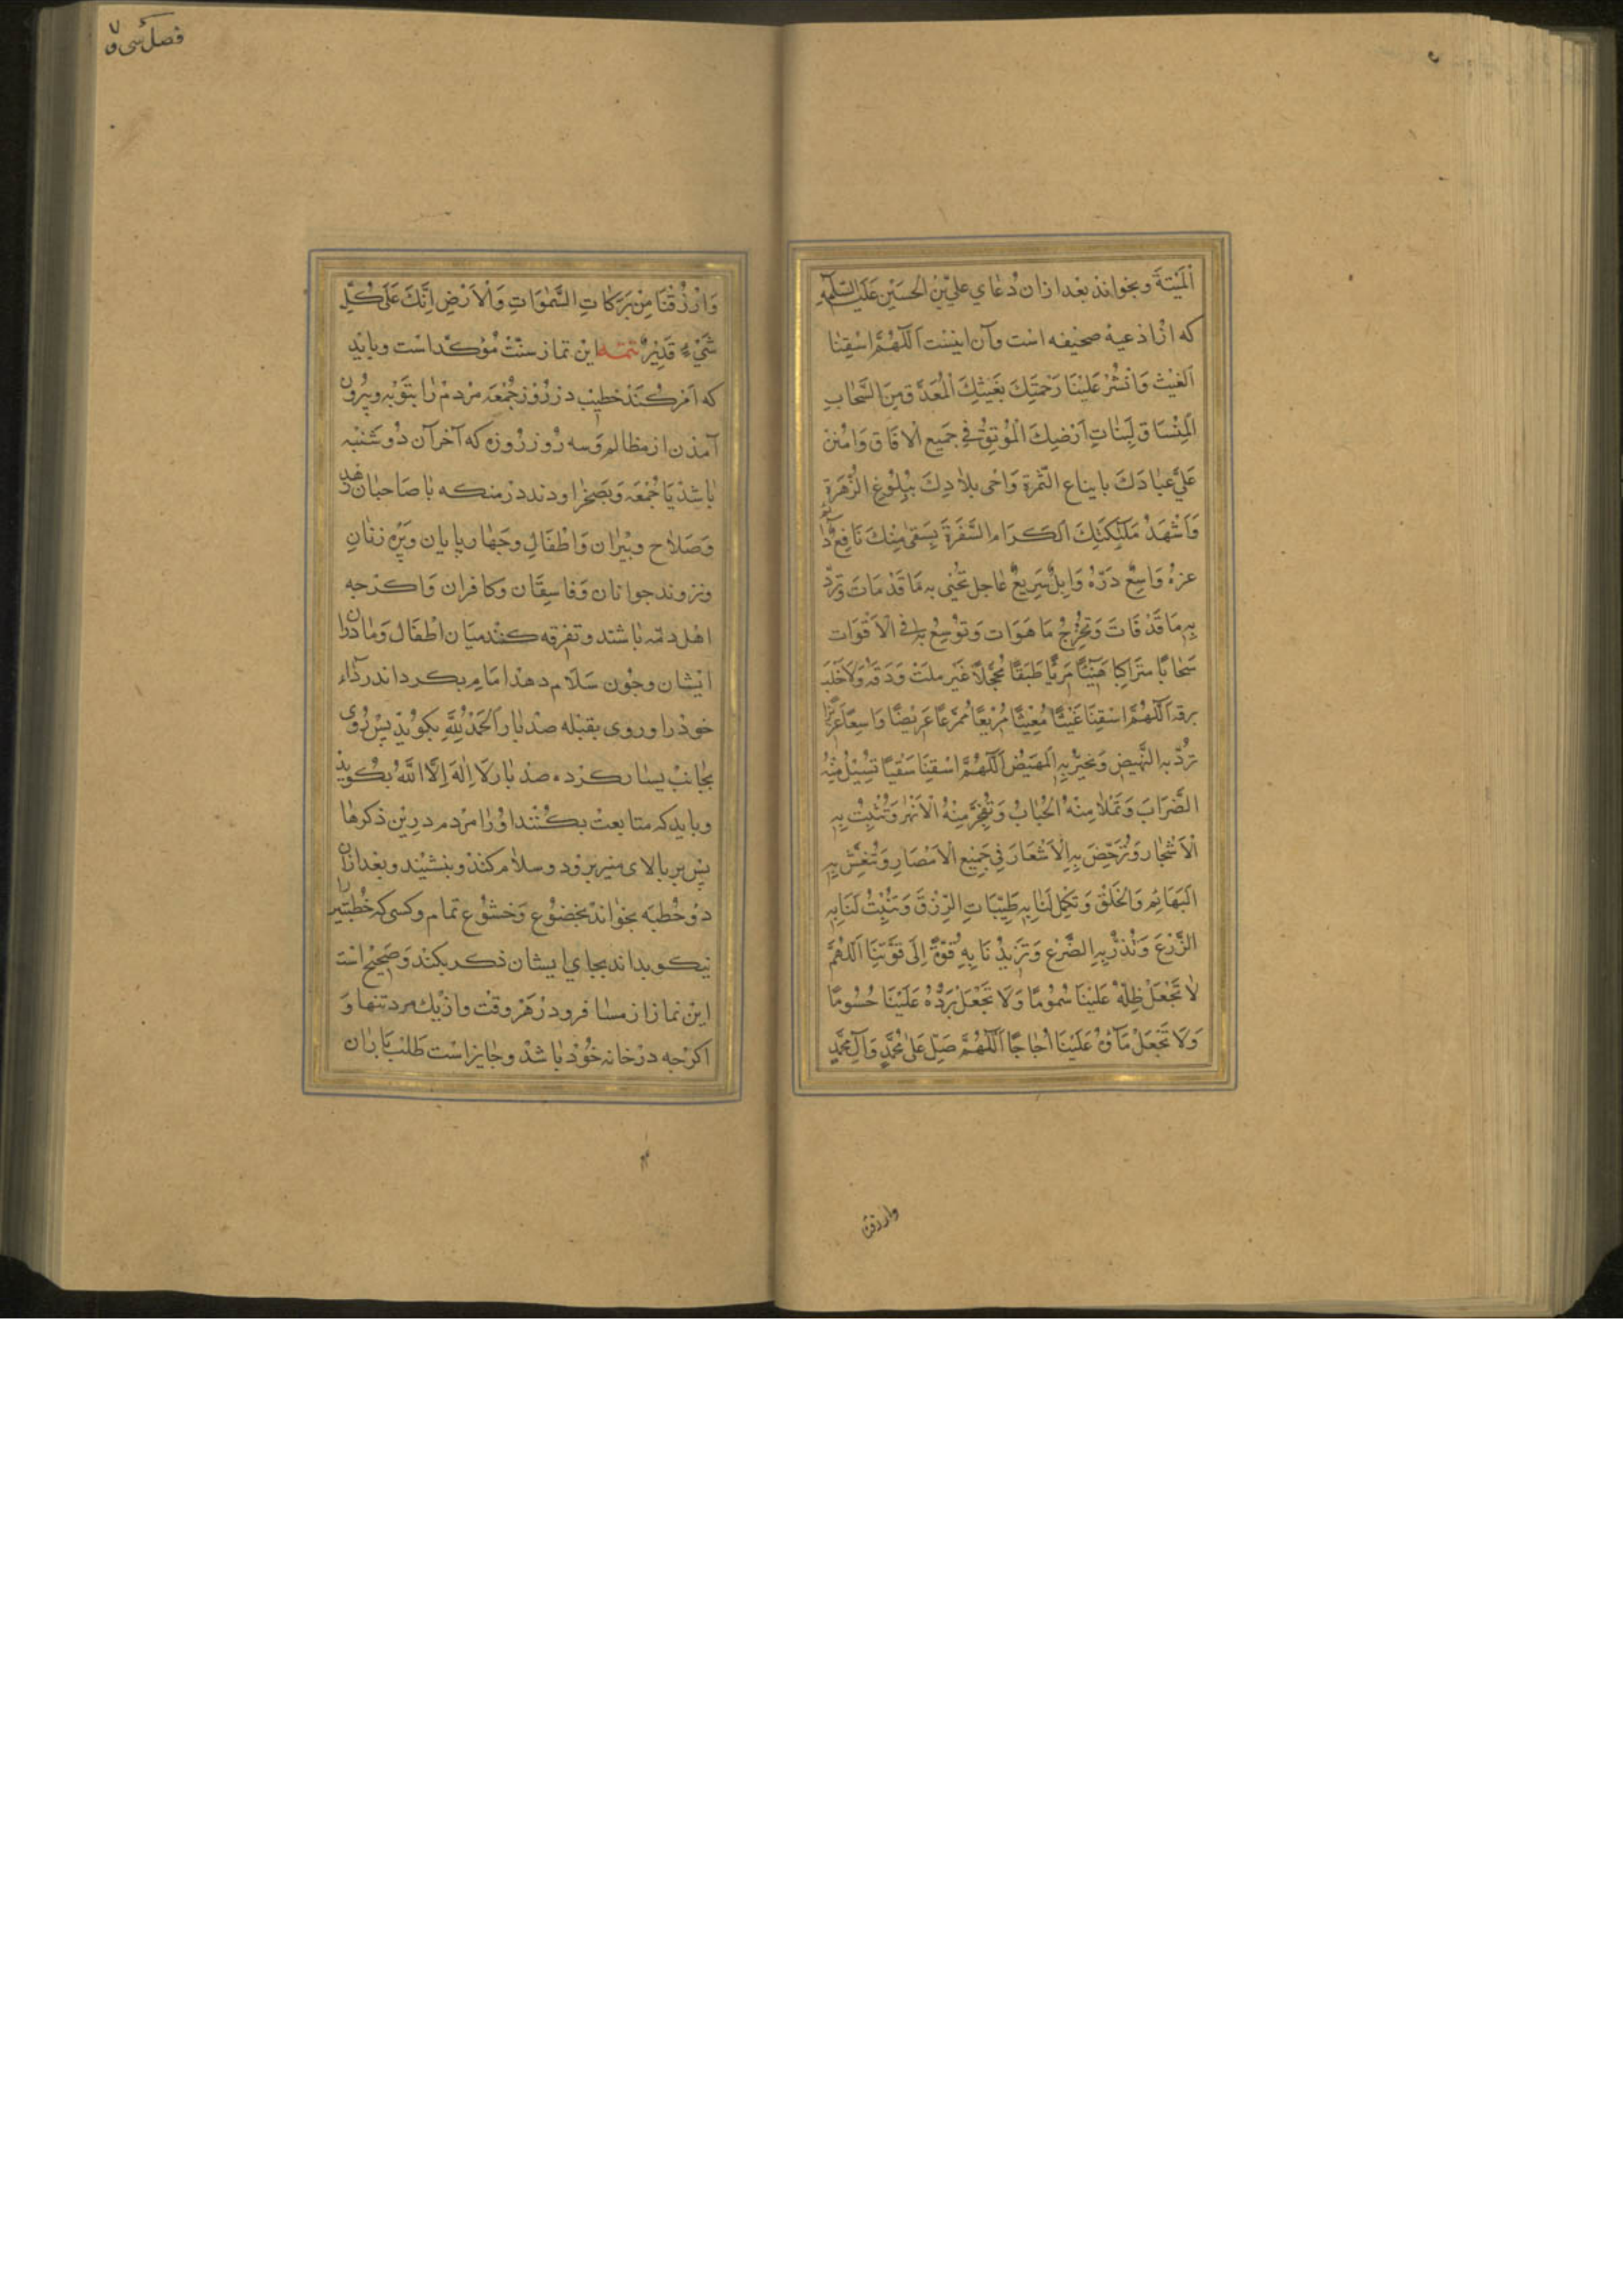 اَلْمَيْتَةَ وبخواند بعد ازان دُعاي عليّ بن الحسين عليه السّلم
که از ادعیهٔ صحیفه است وآن اینست اَللّهُمَّ اسْقِنَا
اَلغَيْثَ وَانْشُرْ عَلَيْنَا رَحْمَتَكَ بِغَيثِكَ الْمُغْدَقِ مِنَ السَّحَابِ
الْمُنْسَاقِ لِنَبَاتِ اَرْضِكَ الْمُونِقِ في جَمِيعِ الْافَاقِ وَامْنُنْ
عَلي عِبَادِكَ بايناع الثّمرة وَاحْى بلادِكَ بِبُلُوغِ الزَّهَرَةِ
وَاَشْهِدْ مَلٰئِكَتَكَ الكرَامِ السَّفَرَةَ بِسَقىٍ مِنْكَ نَافِعٌ دآئم
عزرهُ وَاسِعٌ دَرّهُ وَابِلٌ سَرِيعٌ عاجل تُحْيى به مَا قَدْ مَاتَ وَتردّ
بِهِ مَا قَدْ فَاتَ وَتُخْرِجُ مَا هَوَات وَتُوسِعُ به في الْاَقْوَات
سَحَابًا متَرَاكِبا هَنِيْئًا مَرِيًّا طَبَقًا مُجَّلًا غَيْر ملث وَدَقَهُ وَلَا خلّب
برقه اَللّهُمَّ اسْقِنَا غَيْثًا مُغِيْثًا مُرِيْعًا مُمَرِّعًا عَرِيْضًا وَاسِعًا غَزِيْرًا
تَرُدُّ بِهِ النَّهيضَ وَتجبُر بِهِ الْمَهِيْضَ اَللّهُمَّ اسْقِنَا سَقْيًا تَسِيْلُ مِنْهُ
الضِّرَابَ وَتَمْلأ مِنْهُ الْجُبَابُ وَتُفَجِّرُ مِنْهُ الْاَنْهٰرَ وَتُنْبِتُ بِهِ
الْاَشْجَار وَتُرَخِّصُ بِهِ الْاَسْعَارَ فِي جَمِيْعِ الْاَمْصَارِ وَتُنْعِشُ بِهِ
اَلْبَهَائِمَ وَالْخَلْقَ وَتُكْمِل لَنَا بِهِ طَيِّبَاتِ الرِّزْقِ وَتُنْبِتُ لَنَا بِهِ
الزَّرْعَ وَتُدِرُّ بِهِ الضَّرْعَ وَتَزِيْدُنَا بِهِ قُوَّةً اِلَى قُوَّتِنَا اَللّهُمَّ
لَا تَجْعَلْ ظِلَّهُ عَلَيْنَا سُمُومًا وَلَا تَجْعَلْ بَرْدُهُ عَلَيْنَا حُسُومًا
وَلَا تَجْعَلْ مَآؤهُ عَلَيْنَا اُجَاجًا اَللّهُمَّ صَلِّ عَلٰى مُحَمَّدٍ وَآلِ مُحَمَّدٍ
وارزقنا
فصل سی و ۷
وَارْزُقْنَا مِنْ بَرَكَاتِ السَّمٰوَاتِ وَالْاَرْضِ اِنَّكَ عَلَى كُلِّ
شَيْءٍ قَدِيْرٌ تتمّه این نماز سنّت مُؤکّد است وباید
که اَمر کُنَد خطیب در رُوز جُمْعَه مردم را بتوْبه وبیرُون
آمدن از مظالم وَسه رُوز روزه که آخر آن دُوشنبه
باشد یا جُمعَه وَبصَحْرا روند در منکه با صَاحبان زهد
وَصَلاح وپیران وَاطفال وچهارپایان وپیره زنان
ونروند جوانان وَفاسِقان وکافران وَاکرچه
اهل ذمّه باشند وتفرقه کنند میَان اطفال ومادران
ایشان وچون سَلام دهد امَام بکرداند ردآء
خود را وروی بقبله صد بار اَلْحَمْدُ لِلّٰهِ بکوید پس رُوی
بجانب یسار کرده صد بار لَا اِلٰهَ اِلَّا اللّٰهُ بکوید
وباید که متابعت بکُنند اوْرا مردم درین ذکرها
پس بر بالای منبر برود وسلام کند وبنشیند وبعد ازان
دو خُطبَه بخواند بخضُوع وَخشوُع تمام وکسی که خُطبتین را
نیکو بداند بجاي ایشان ذکر بکند وَصَحیح است
این نماز از مسافر ودر هَر وقت واز یک مرد تنها وَ
اکرچه در خانه خُود باشد وجایز است طلب باران